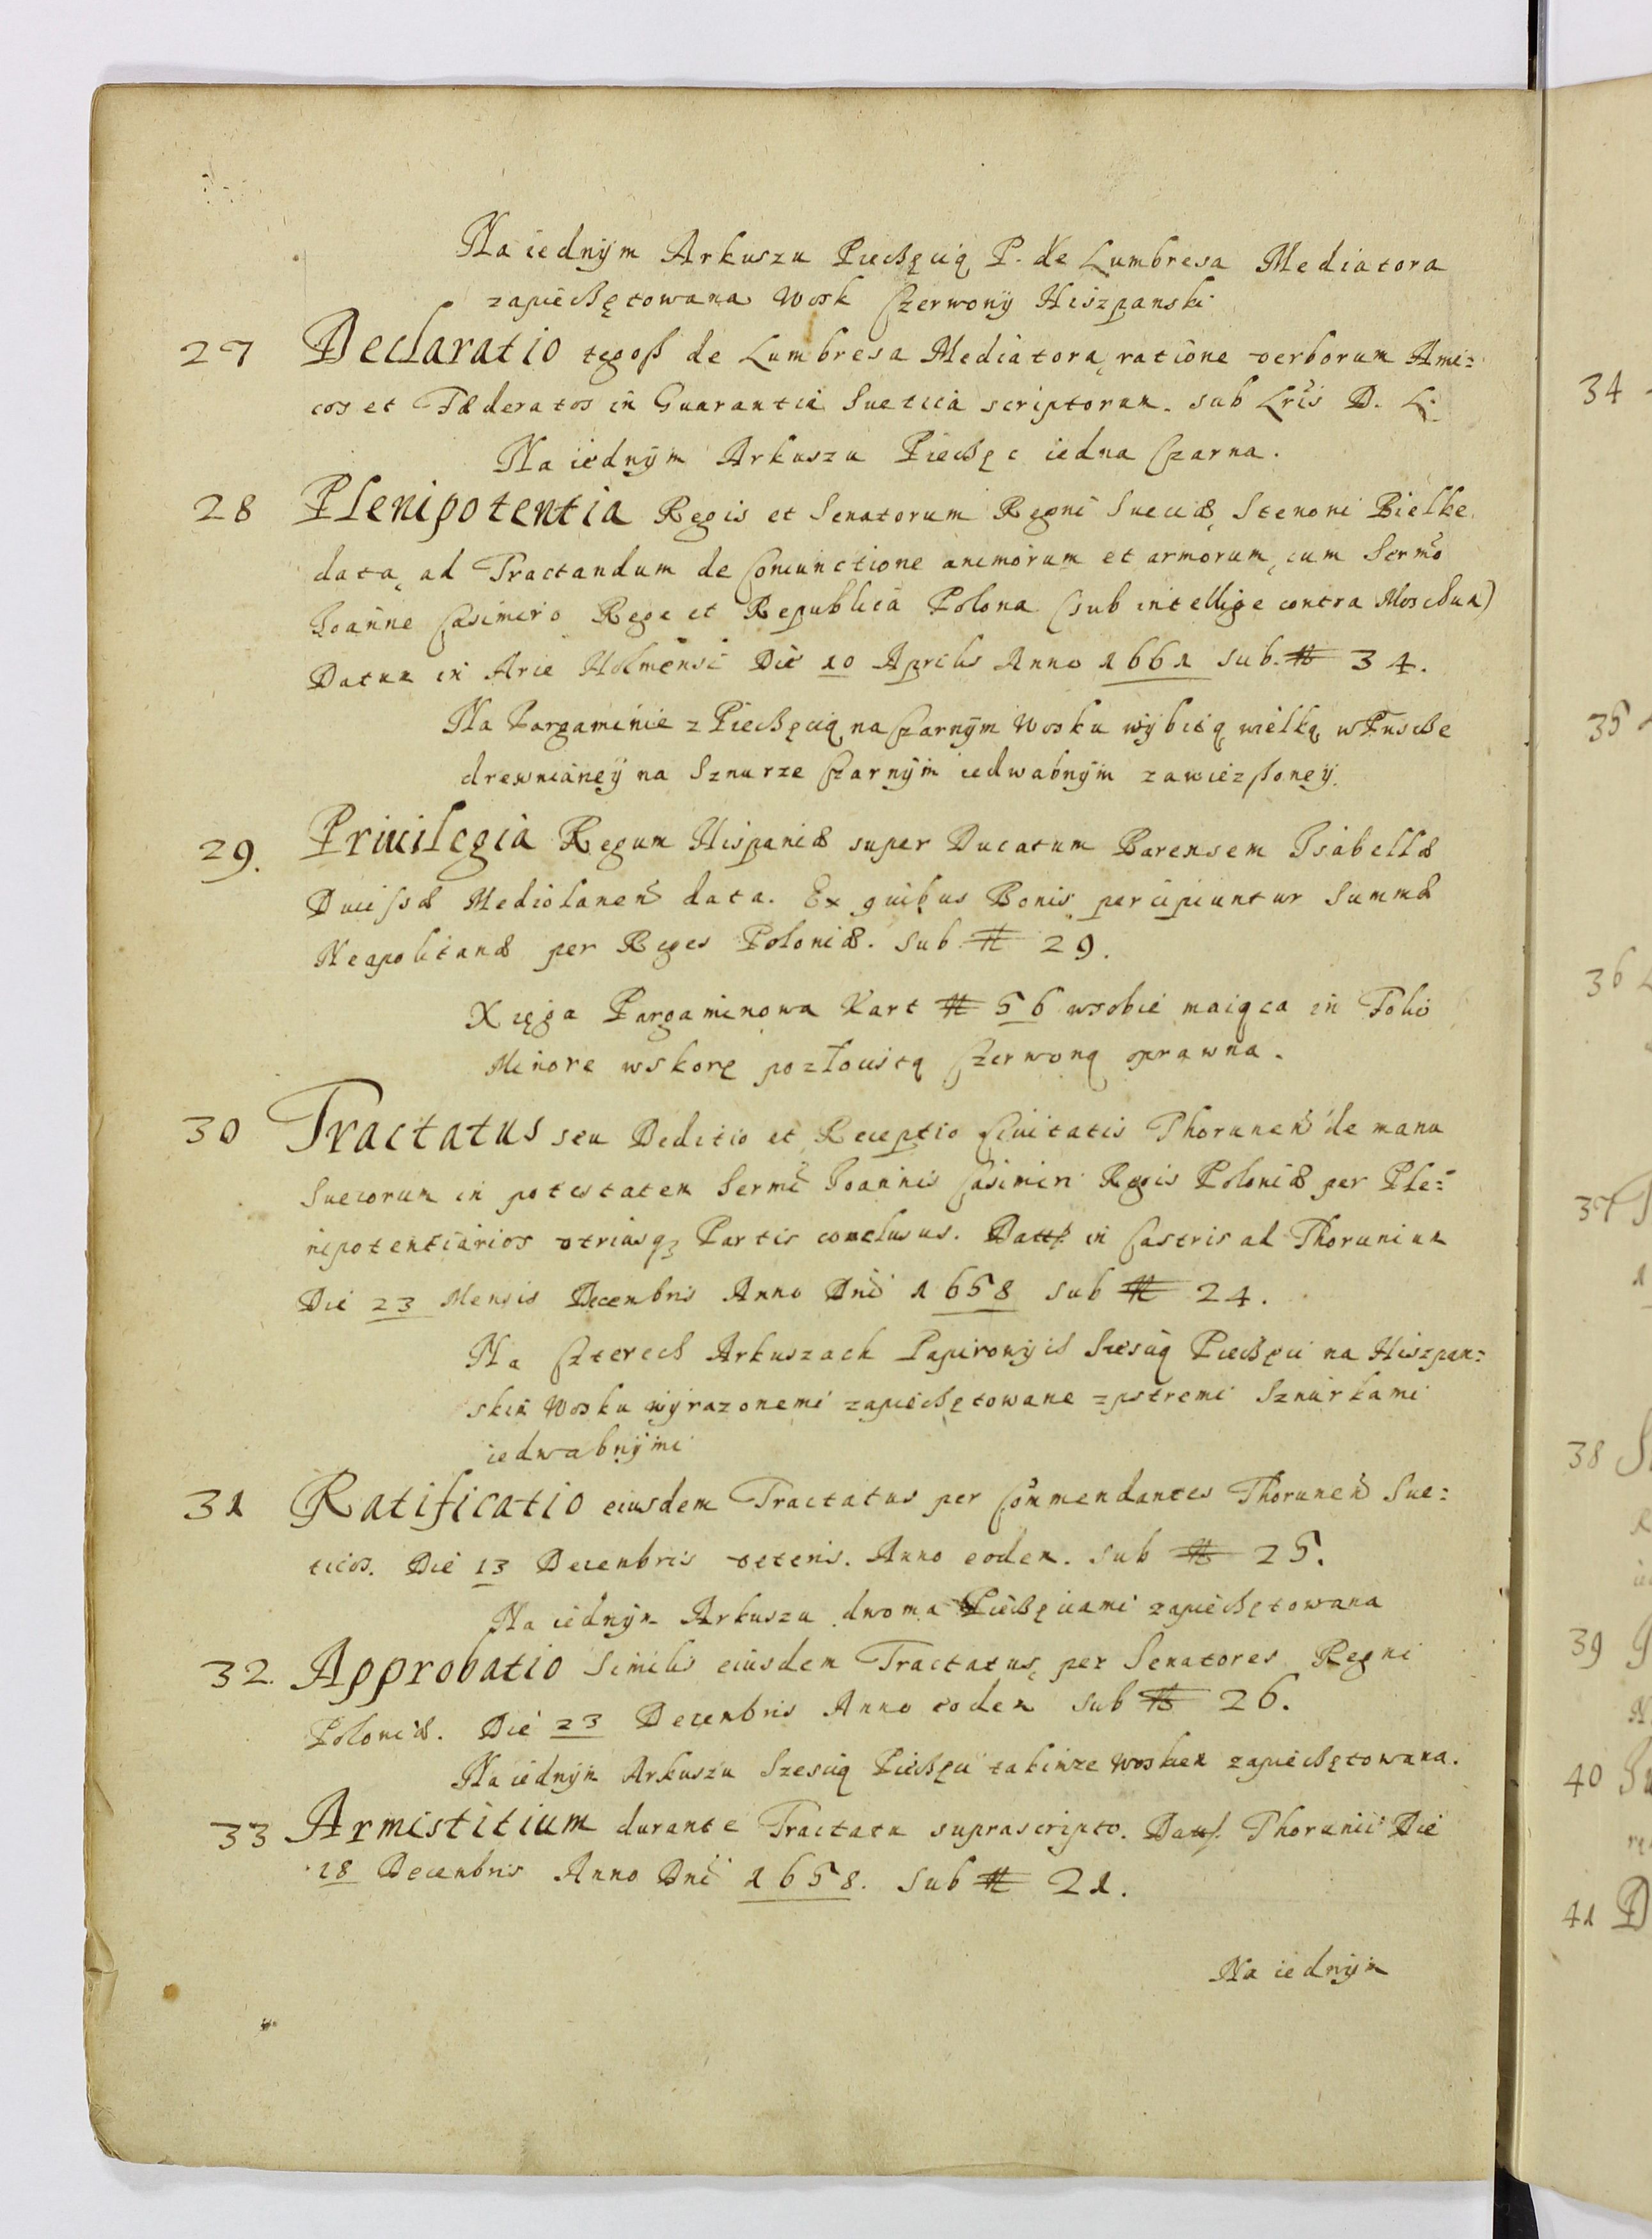 Na iednÿm Arkuszu Piecħęcią P. de Lumbresa Mediatora
zapiecħętowana Wosk Czerwonÿ Hiszpanski
27 Declaratio tegosz de Lumbresa Mediatora, ratione verborum Ami=
cos et Fæderatos in Guarantia Suetica scriptorum. sub Lris D. L.
Na iednÿm Arkuszu Piecħęc iedna Czarna.
28 Plenipotentia Regis et Senatorum Regni Sueciæ, Stenoni Bielke
data, ad Tractandum de Coniunctione animorum et armorum, cum Sermo
Joanne Casimiro Rege et Republica Polona (sub intellige contra Moscħum)
Datum in Arce Holmensi Die 10 Aprilis Anno 1661 sub. N 34.
Na Pargaminie z Piecħęcią na Czarnÿm Wosku wÿbitą wielką w Puscħe
drewnianeÿ na Sznurze Czarnÿm iedwabnÿm zawieszoneÿ.
29. Priuilegia Regum Hispaniæ super Ducatum Barensem Isabellæ
Ducissæ Mediolanen data. Ex quibus Bonis percipiuntur Summæ
Neapolitanæ per Reges Poloniæ. Sub N 29.
Xięga Pargaminowa Kart N 56 w sobie maiąca in Folio
Minore w skorę pozłocistą Czerwoną oprawna.
30 Tractatus seu Deditio et Receptio Ciuitatis Thorunen de manu
Suecorum in potestatem Sermi Joannis Casimiri Regis Poloniæ per Ple=
nipotentiarios vtriusq3 Partis conclusus. Datt. in Castris ad Thorunium
Die 23 Mensis Decembris Anno Dni 1658 sub N 24.
Na Czterecħ Arkuszach Papirowÿcħ Szescią Piecħęci na Hiszpan=
skim Wosku wÿrazonemi zapiecħętowane z pstremi Sznurkami
iedwabnÿmi
31 Ratificatio eiusdem Tractatus per Commendantes Thorunen Sue=
ticos. Die 13 Decembris veteris. Anno eodem. sub N 25.
Na iednÿm Arkuszu dwoma Piecħęciami zapiecħętowana
32. Approbatio Similis eiusdem Tractatus, per Senatores Regni
Poloniæ. Die 23 Decembris Anno eodem sub N 26.
Na iednÿm Arkuszu Szescią Piecħęci takimze Woskiem zapiecħętowana.
33 Armistitium durante Tractatu suprascripto. Datt. Thorunii Die
18 Decembris Anno Dni 1658. Sub N 21.
Na iednÿm
34
35
36
37
38
39
40
41 D